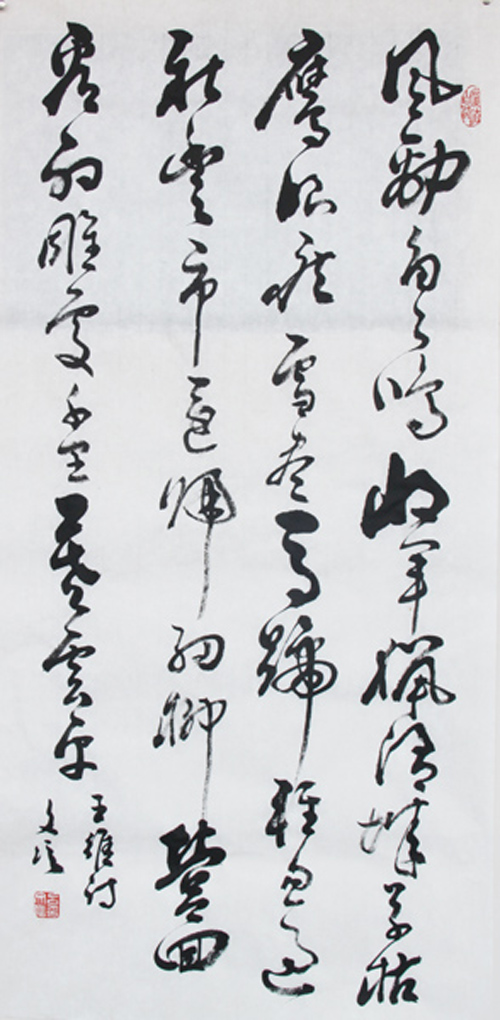 風勁角弓鳴將軍獵渭城草枯
鷹眼疾雪盡馬蹄輕忽過
新豐市還歸細柳營回
看射雕處千里暮雲平
王維詩
文